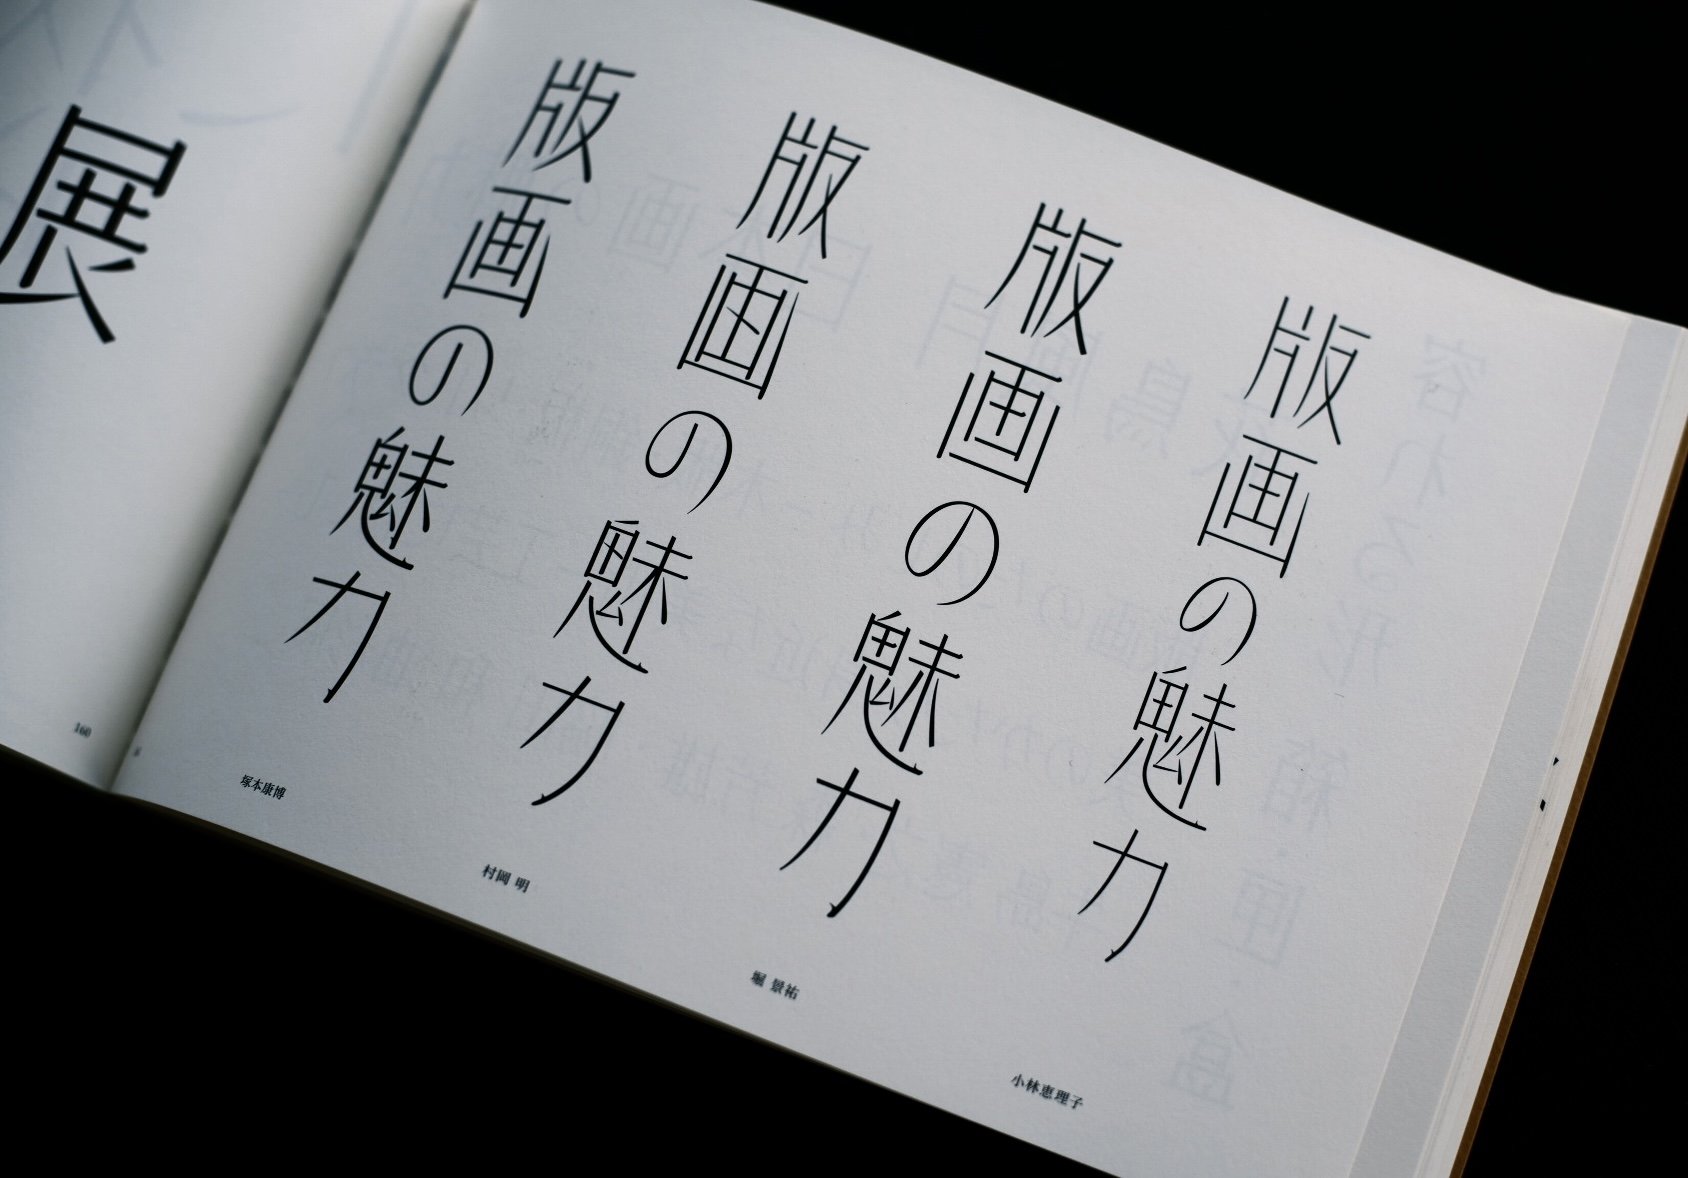 展
160
版画の魅力
塚本康博
版画の魅力
村岡 明
版画の魅力
堀 景祐
版画の魅力
小林恵理子